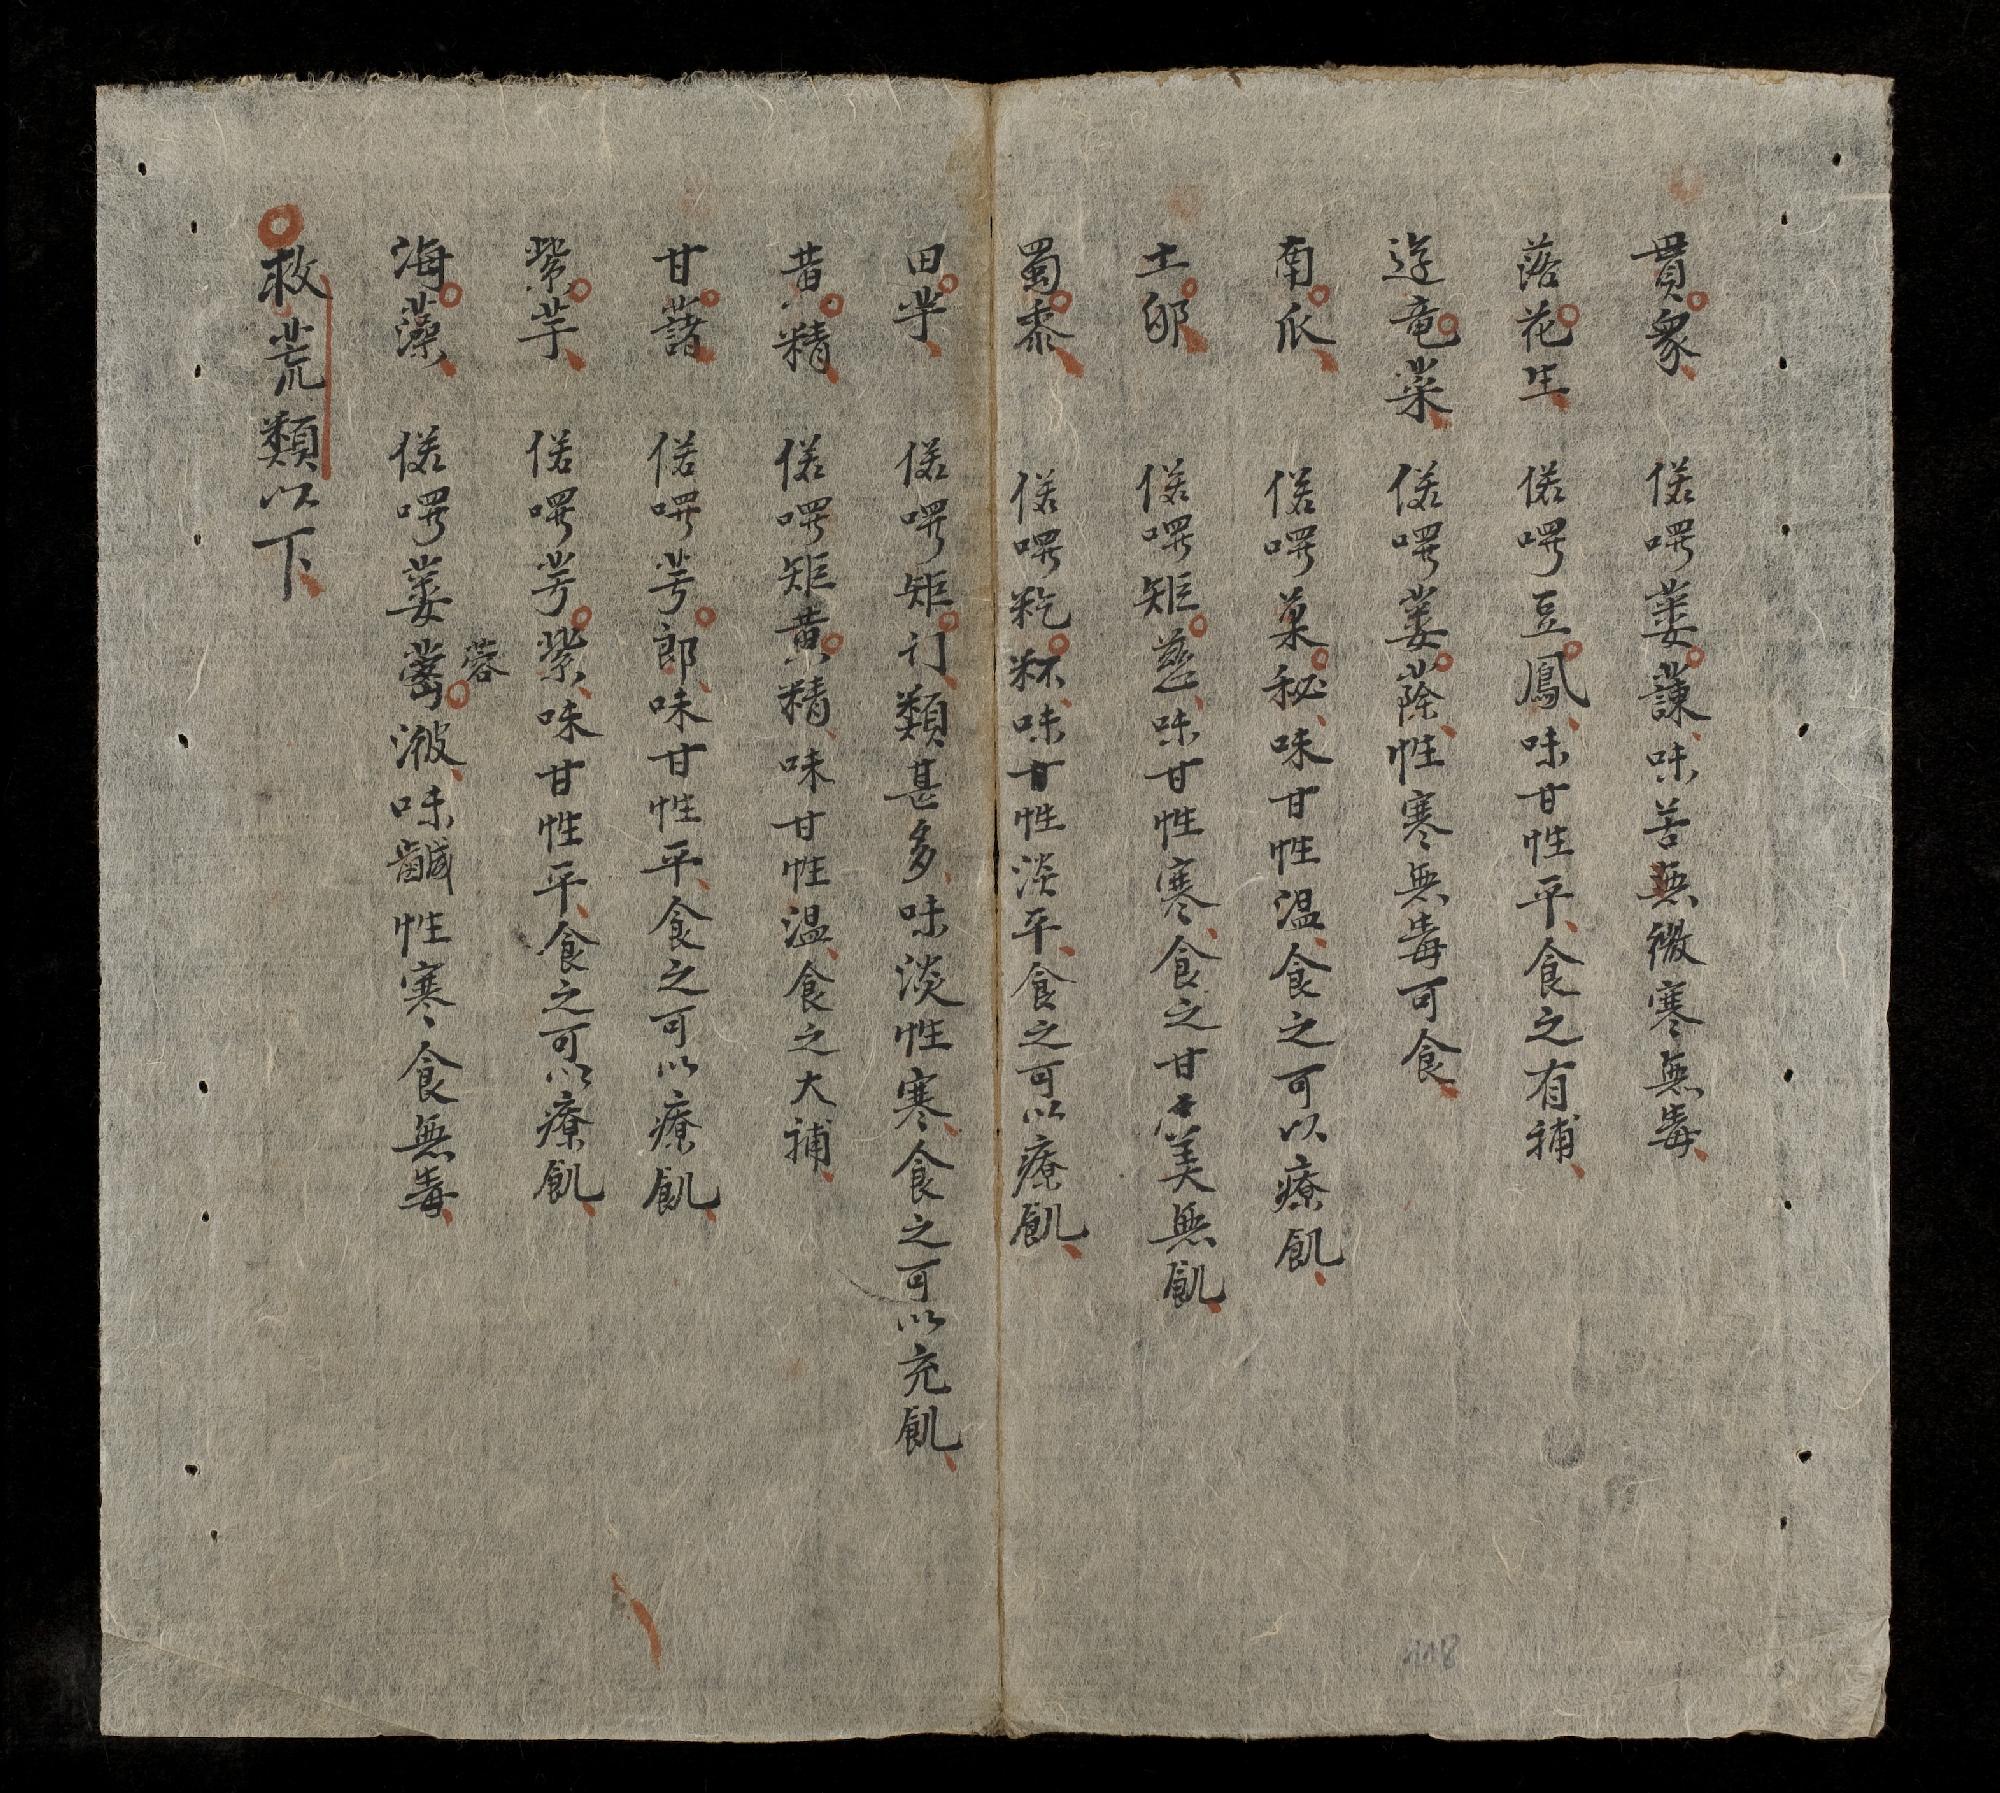 貫衆 偌㗂蔞蒹味苦無微寒無毒
落花生 偌㗂豆鳳味甘性平食之有補
遊竜菜 偌㗂蔞蒢性寒無毒可食
南瓜 偌㗂菓秘味甘性温食之可以療飢
土卵 偌㗂矩慈味甘性寒食之甘美無飢
蜀黍 偌㗂粏粰味甘性淡平食之可以療飢
田芋 偌㗂矩订類甚多味淡性寒食之可以充飢
黄精 偌㗂矩黄精味甘性温食之大補
甘藷 偌㗂芌郎味甘性平食之可以療飢
紫芋 偌㗂芌紫味甘性平食之可以療飢
海藻 偌㗂蔞渡味鹹性寒食無毒
蓉
救荒類以下
118